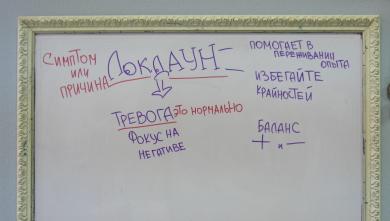 СИМПТОМ
ИЛИ
ПРИЧИНА
ЛОКДАУН
ПОМОГАЕТ В
ПЕРЕЖИВАНИИ
ОПЫТА
ИЗБЕГАЙТЕ
КРАЙНОСТЕЙ
ТРЕВОГА ЭТО НОРМАЛЬНО
ФОКУС НА
НЕГАТИВЕ
БАЛАНС
+ и —